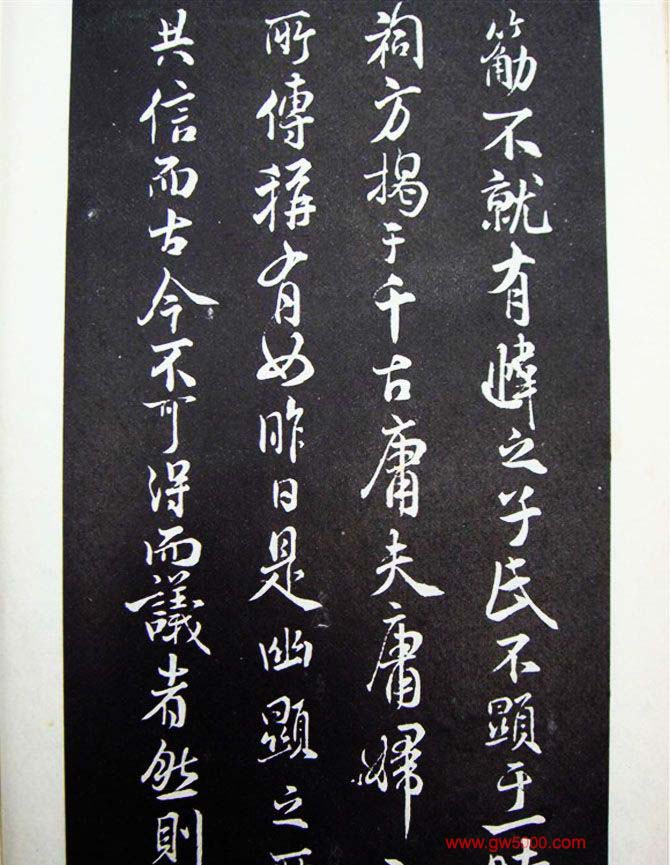 不就有之民不顯于一時
祠方揭于千古庸夫庸婦
所傳稱有如昨日是幽顯之所
共信而古今不可得而議者然則
www.gw5000.com